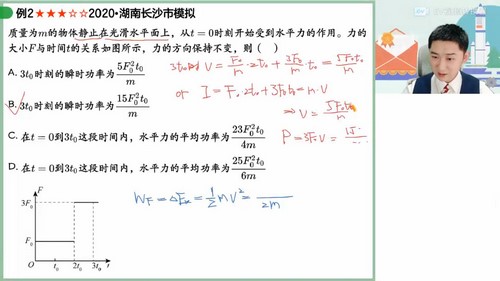 例2★★★☆☆2020·湖南长沙市模拟
质量为m的物体静止在光滑水平面上,从t=0时刻开始受到水平力的作用。力的
大小F与时间t的关系如图所示,力的方向保持不变,则( )
A. 3t₀时刻的瞬时功率为5F₀²t₀/m
B. 3t₀时刻的瞬时功率为15F₀²t₀/m
C. 在t=0到3t₀这段时间内,水平力的平均功率为23F₀²t₀/4m
D. 在t=0到3t₀这段时间内,水平力的平均功率为25F₀²t₀/6m
3t₀时 V=F₀/m·2t₀+3F₀/m·t₀=5F₀t₀/m
or I=F₀·2t₀+3F₀t₀=m·V
⇒ V=5F₀t₀/m
P=3F₀V=
W_F=ΔE_k=1/2mV²=/2m
F
3F₀
F₀
O t₀ 2t₀ 3t₀ t